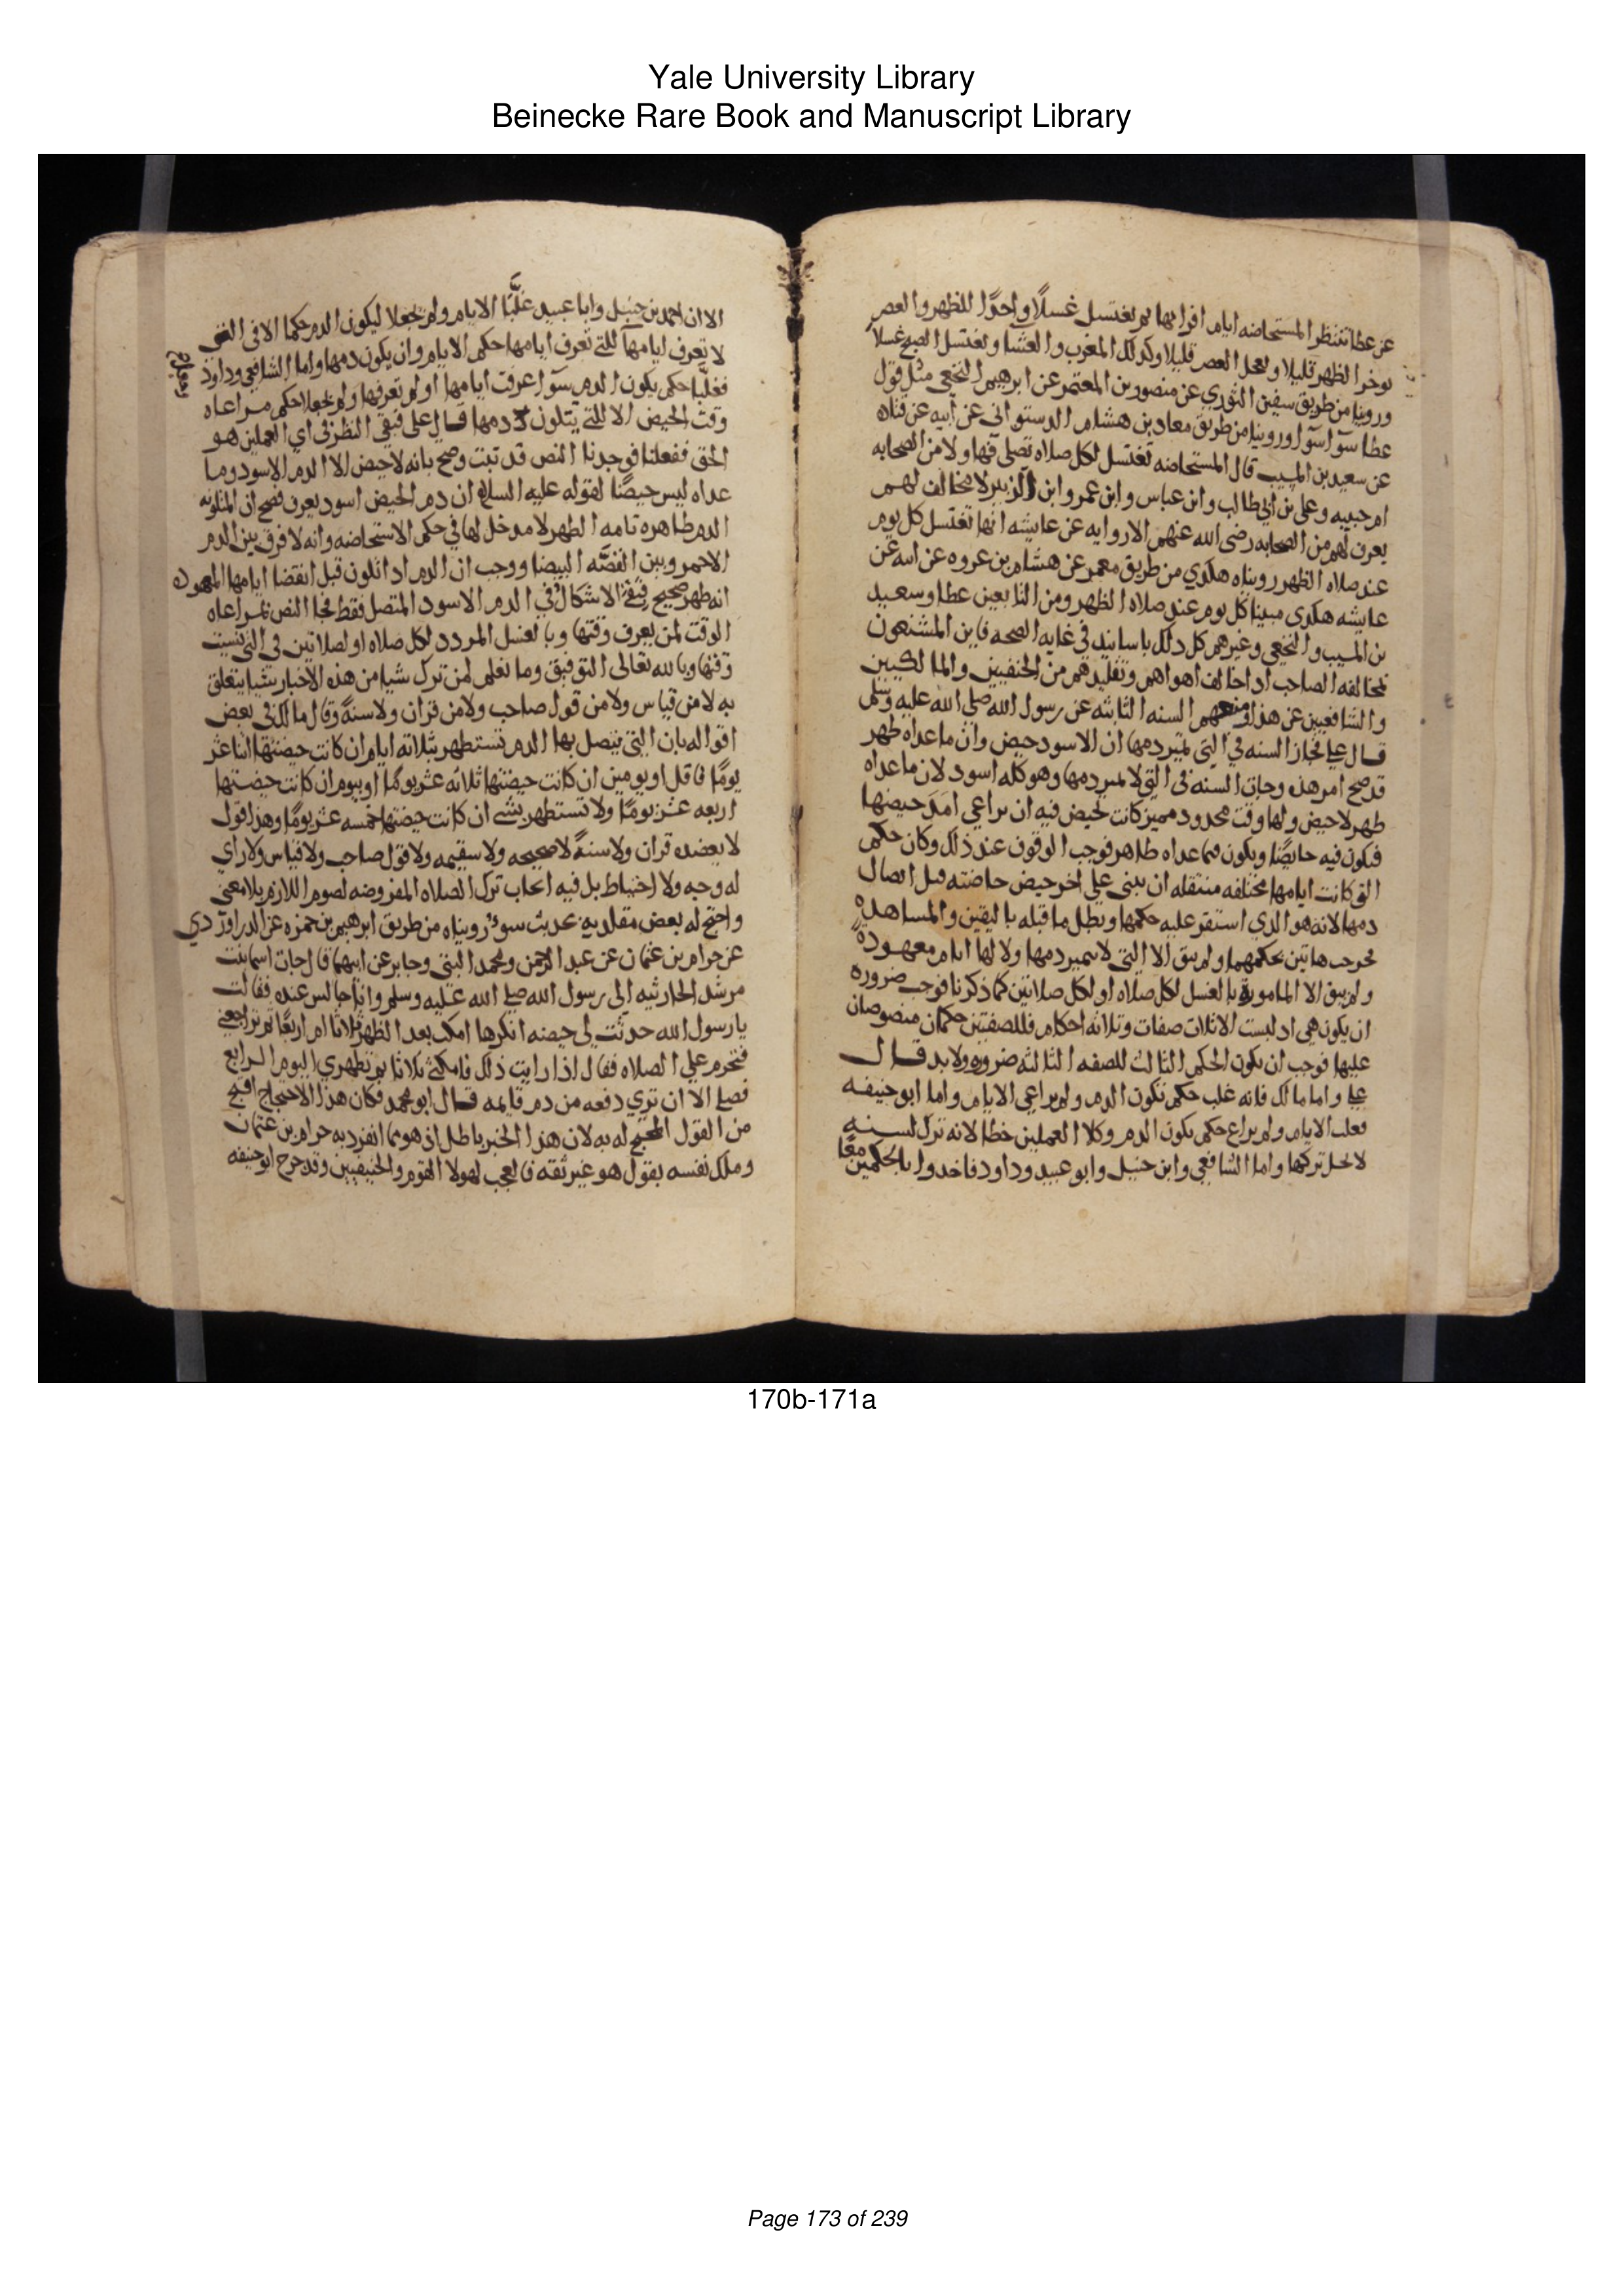 Yale University Library
Beinecke Rare Book and Manuscript Library
عن عطا تنتظر المستحاضه ايام اقرايها ثم تغتسل غسلًا واحدًا للظهر والعصر
توخر الظهر قليلا وتعجل العصر قليلا وكذلك المغرب والعشا وتغتسل الصبح غسلًا
وروينا من طريق سفين الثوري عن منصور بن المعتمر عن ابرهيم النخعي مثل قول
عطا سوآ سوآ وروينا من طريق معاد بن هشام الدستوائى عن ابيه عن قتاده
عن سعيد بن المسيب قال المستحاضه تغتسل لكل صلاه تصلى فهاولا من الصحابه
ام حبيبه وعلى بن ابي طالب وابن عباس وابن عمر وابن الزبير لا مخالف لهم
يعرف لهم من الصحابه رضى الله عنهم الا روايه عن عايشه انها تغتسل كل يوم
عند صلاه الظهر رويناه هكدي من طريق معمر عن هشام بن عروه عن ابيه عن
عايشه هكدى مبينا كل يوم عند صلاه الظهر ومن التابعين عطا وسعيد
بن المسيب والنخعي وغيرهم كل دلك باسانيد في غايه الصحه فاين المشنعون
لمخالفه الصاحب ادا خالف اهواهم وتقليدهم من الحنفيين والمالكيين
والشافعيين عن هذا ومعهم السنه الثابته عن رسول الله صلى الله عليه وسلم
قال علي فجاز السنه في التى تميز دمها ان الاسود حيض وان ما عداه طهر
قد صح امر هذه وجات السنه فى التى لا تميز دمها وهو كله اسود لان ما عداه
طهر لا حيض ولها وقت محدود مميز كانت تحيض فيه ان تراعي امَدَ حيضها
فتكون فيه حايضًا ويكون فيما عداه طاهر فوجب الوقوف عند ذلك وكان حكم
التى كانت ايامها مختلفه منتقله ان تبنى على اخر حيض حاضته قبل اتصال
دمها لانه هو الذي استقر عليه حكمها وبطل ما قبله باليقين والمشاهده
فخرجت هاتين بحكمهما ولم يبق الا التى لا تميز دمها ولا لها ايام معهودة
ولم يبق الا المامورة بالغسل لكل صلاه او لكل صلاتين كما ذكرنا فوجب ضروره
ان يكون هي اد ليست الا ثلاث صفات وثلاثه احكام فللصفتين حكمان منصوصان
عليها فوجب ان يكون الحكم الثالث للصفه الثالثه ضروره ولا بد قال
علي واما مالك فانه غلب حكم تكون الدم ولم يراعي الايام واما ابو حنيفه
فغلب الايام ولم يراع حكم تكون الدم وكلا العملين خطا لانه ترك لسنه
لا يحل تركها واما الشافعي وابن حنبل وابو عبيد وداود فاخدوا بالحكمين معًا
الا ان احمد بن حنبل وابا عبيد غلّبا الايام ولم يجعلا ليكون الدم حكما الا فى التى
لا تعرف ايامها للتي تعرف ايامها حكم الايام وان يكون دمها واما الشافعي وداود
فغلّبا حكم يكون الدم سوآ عرفت ايامها او لم تعرفها ولم يجعلا حكم مراعاه
وقت الحيض الا للتي يتلون دمها قال على فبقي النظر فى اي العملين هو
الحق ففعلنا فوجدنا النص قد ثبت وصح بانه لا حيض الا الدم الاسود وما
عداه ليس حيضًا لقوله عليه السلام ان دم الحيض اسود يعرف فصح ان المتلونه
الدم طاهره تامه الطهر لا مدخل لها في حكم الاستحاضه وانه لا فرق بين الدم
الاحمر وبين القصّه البيضا ووجب ان الدم ادا تلون قبل انقضا ايامها المعهوده
انه طهر صحيح فبقي الاشكال في الدم الاسود المتصل فقط فجا النص بمراعاه
الوقت لمن يعرف وقتها وبالغسل المردد لكل صلاه او لصلاتين فى التى نسيت
وقتها وبالله تعالى التوفيق وما نعلم لمن ترك شيا من هذه الاخبار شيا يتعلق
به لا من قياس ولا من قول صاحب ولا من قران ولا سنة وقال مالك في بعض
اقواله بان التى يتصل بها الدم تستطهر بثلاثه ايام ان كانت حيضتها اثنا عشر
يومًا فاقل او يومين ان كانت حيضتها ثلاثه عشر يومًا او بيوم ان كانت حيضتها
اربعه عشر يومًا ولا تستطهر بشي ان كانت حيضتها خمسه عشر يومًا وهذا قول
لا يعضده قران ولا سنةً لا صحيحه ولا سقيمه ولا قول صاحب ولا قياس ولا راي
له وجه ولا احتياط بل فيه ايجاب ترك الصلاه المفروضه لصوم اللازم بلا معنى
واحتج له بعض مقلديه بحديث سوء رويناه من طريق ابرهيم بن حمزه عن الدراوردي
عن حرام بن عثمان عن عبد الرحمن ومحمد ابني وجابر عن ابيهما قال جات اسما بنت
مرشد الحارثيه الى رسول الله صلى الله عليه وسلم وانا جالس عنده فقالت
يا رسول الله حدثت لي حيضه انكرها امكث بعد الطهر ثلاثا ام اربعًا ثم تراجعني
فتحرم علي الصلاه فقال اذا رايت ذلك فامكثي ثلاثا ثم تطهري اليوم الرابع
فصلي الا ان تري دفعه من دم قايمه قال ابو محمد فكان هذا الاحتجاج اقبح
من القول المحتج له به لان هذا الخبر باطل ان هو مما انفرد به حرام بن عثمان
وملك نفسه يقول هو غير ثقه فالعجب لهولا القوم والحنيفيين وقد جرح ابو حنيفه
170b-171a
Page 173 of 239